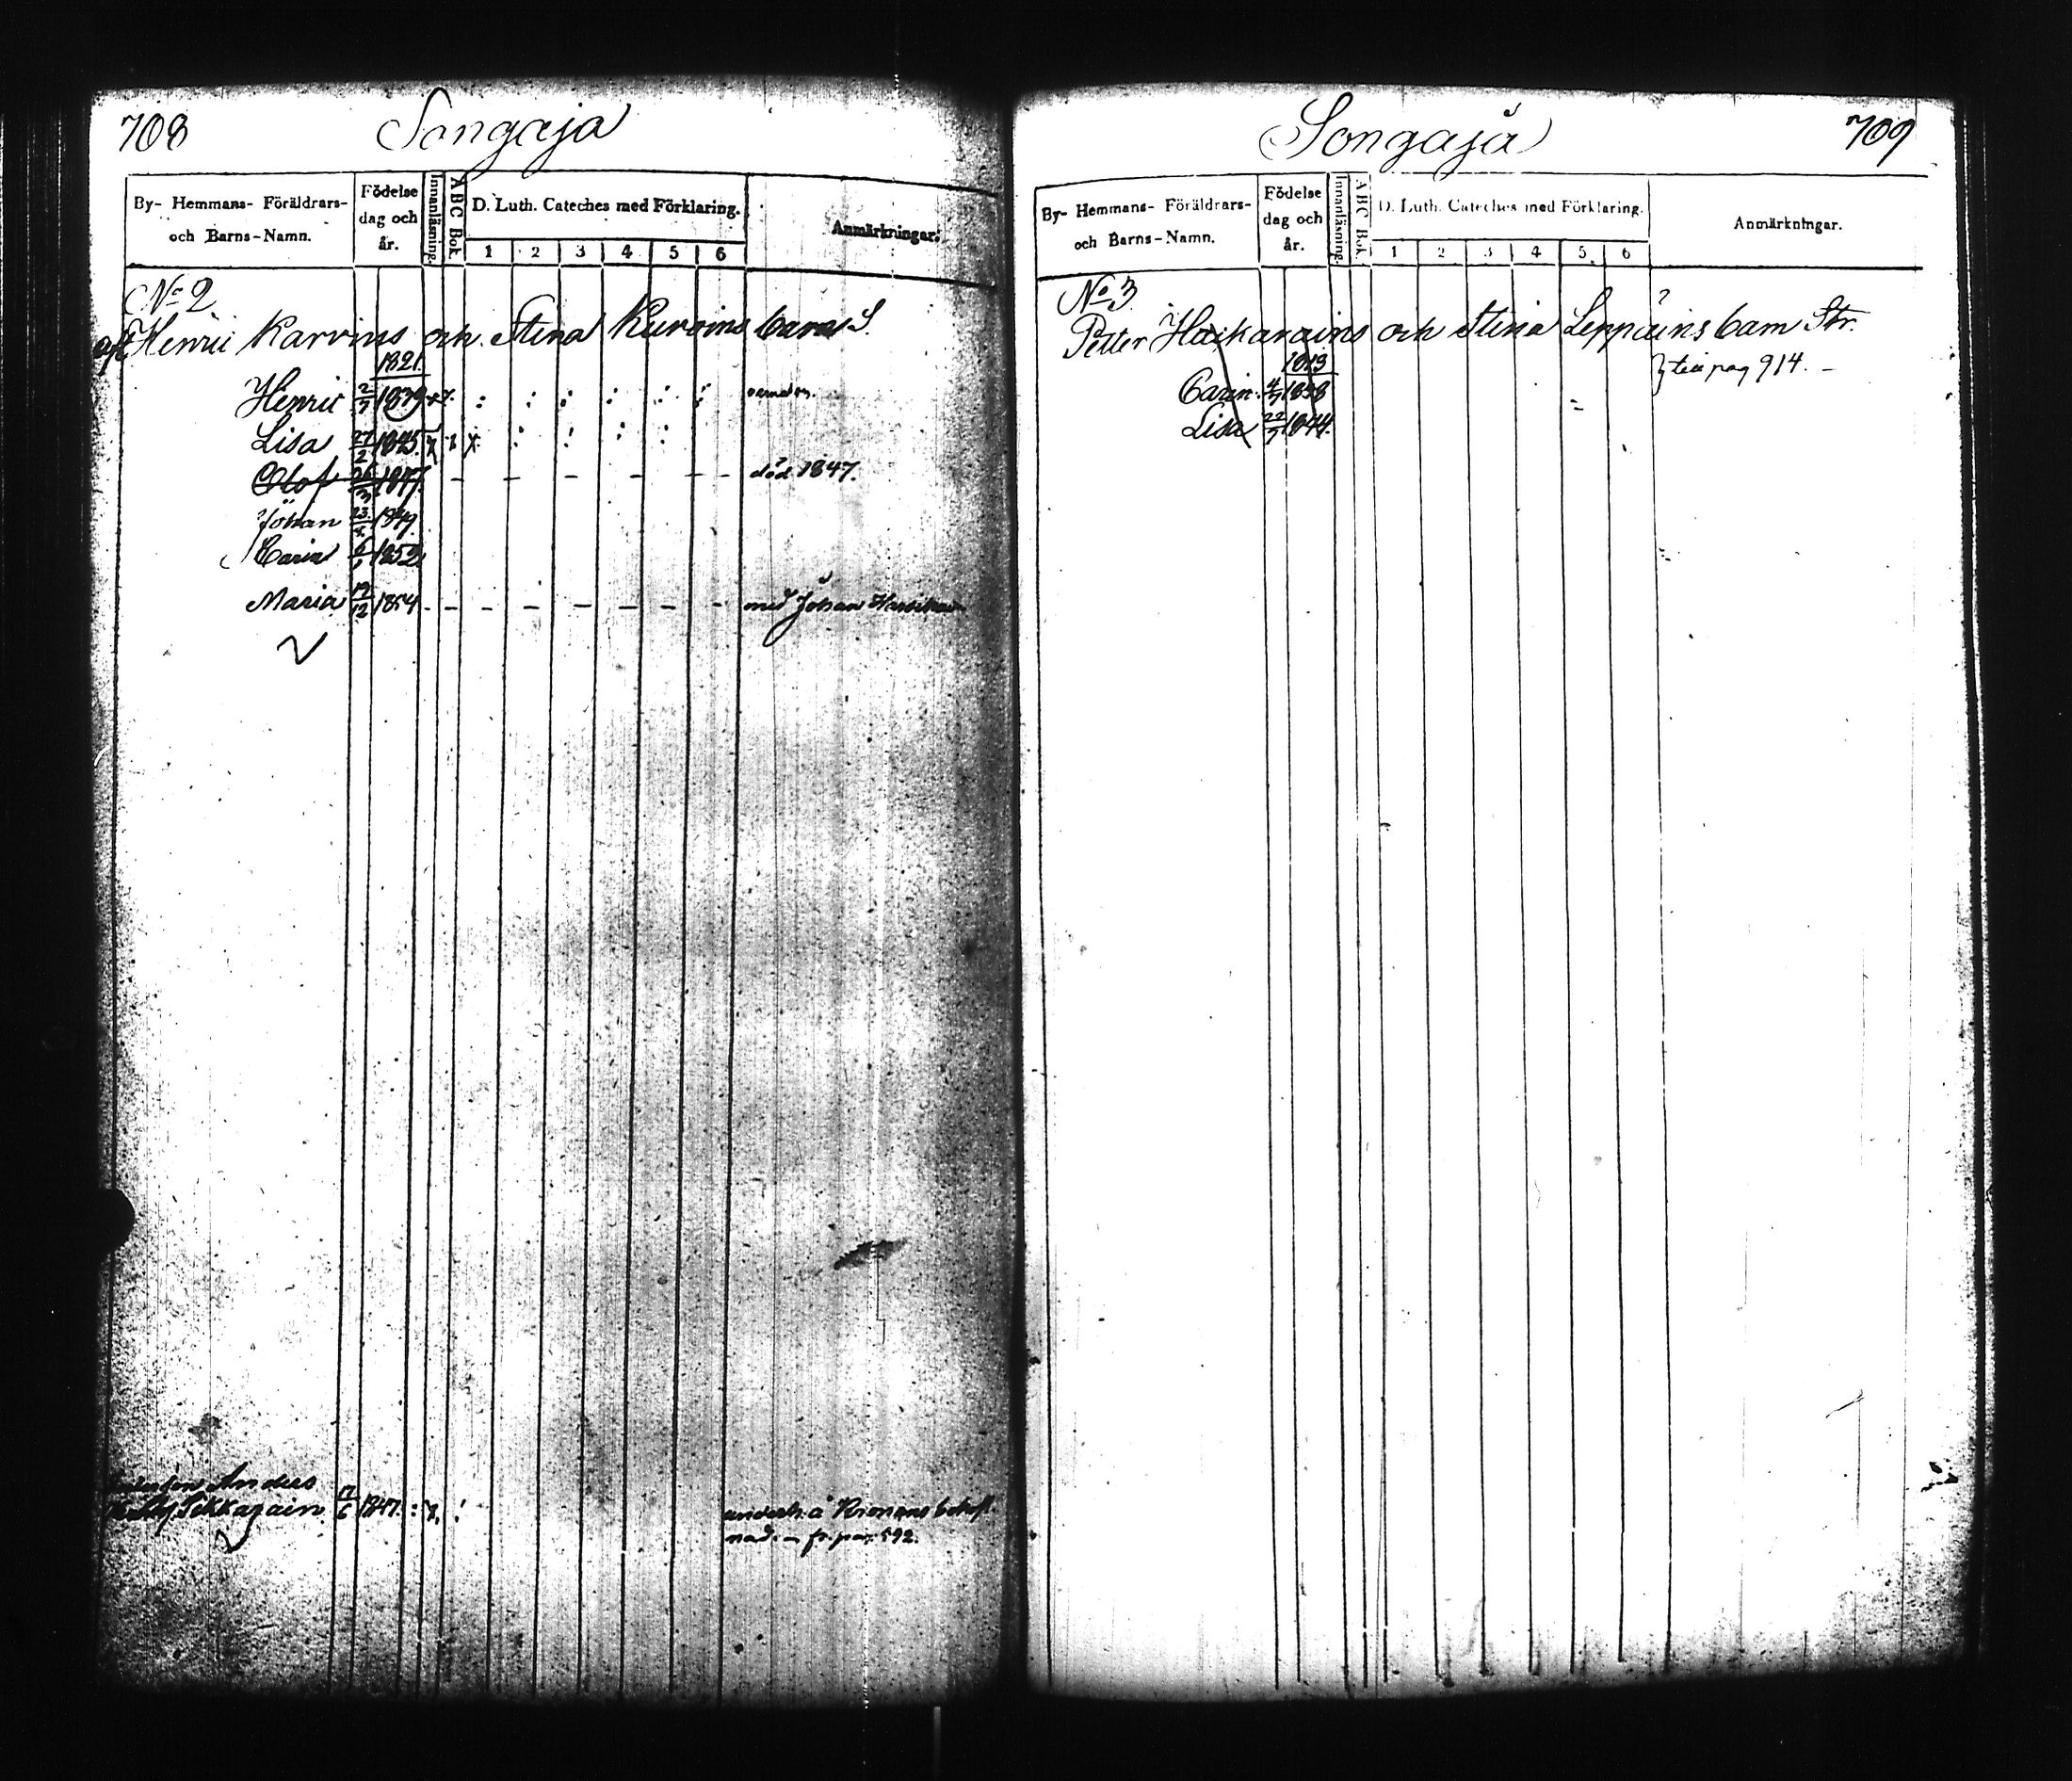 708 Songaja
By- Hemmans- Föräldrars- och Barns-Namn.
Födelse dag och år.
Innanläsning.
ABC Bok.
D. Luth. Cateches med Förklaring.
1 2 3 4 5 6
Anmärkningar.
No 2
Henric Karvins och Stina Kurvins barn S.
1821.
Henric 2/7 1839
Lisa 27/2 1845.
Olof 1847. död 1847.
Johan 23 1849.
Carin 6 1852
Maria 19/12 1854 med Johan
Anders
Sikkarain 12/6 1847. Kronans
nad. fr. pag. 592.
Songajä 709
By- Hemmans- Föräldrars- och Barns-Namn.
Födelse dag och år.
Innanläsning.
ABC Bok.
D. Luth. Cateches med Förklaring.
1 2 3 4 5 6
Anmärkningar.
No 3
Petter Haikarains och Stina Leppäins barn Str.
1813
Carin 4/7 1838 pag 914.
Lisa 22/7 1844.